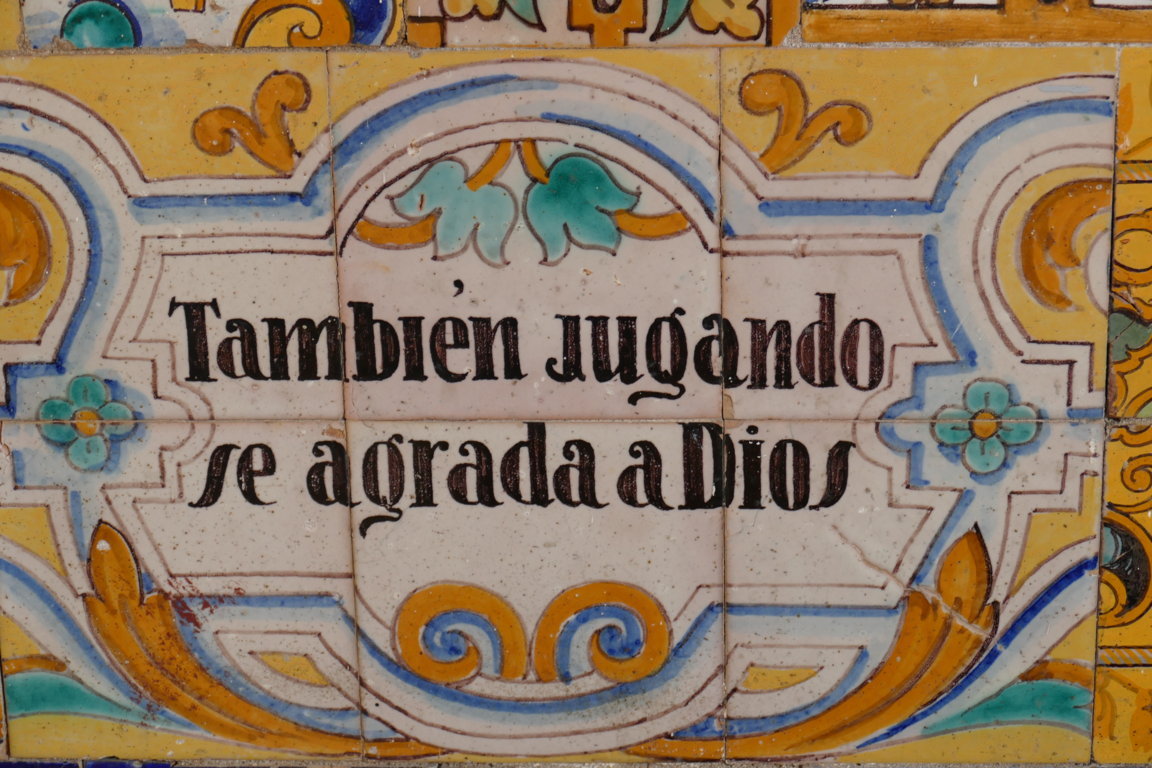 También jugando
se agrada a Dios